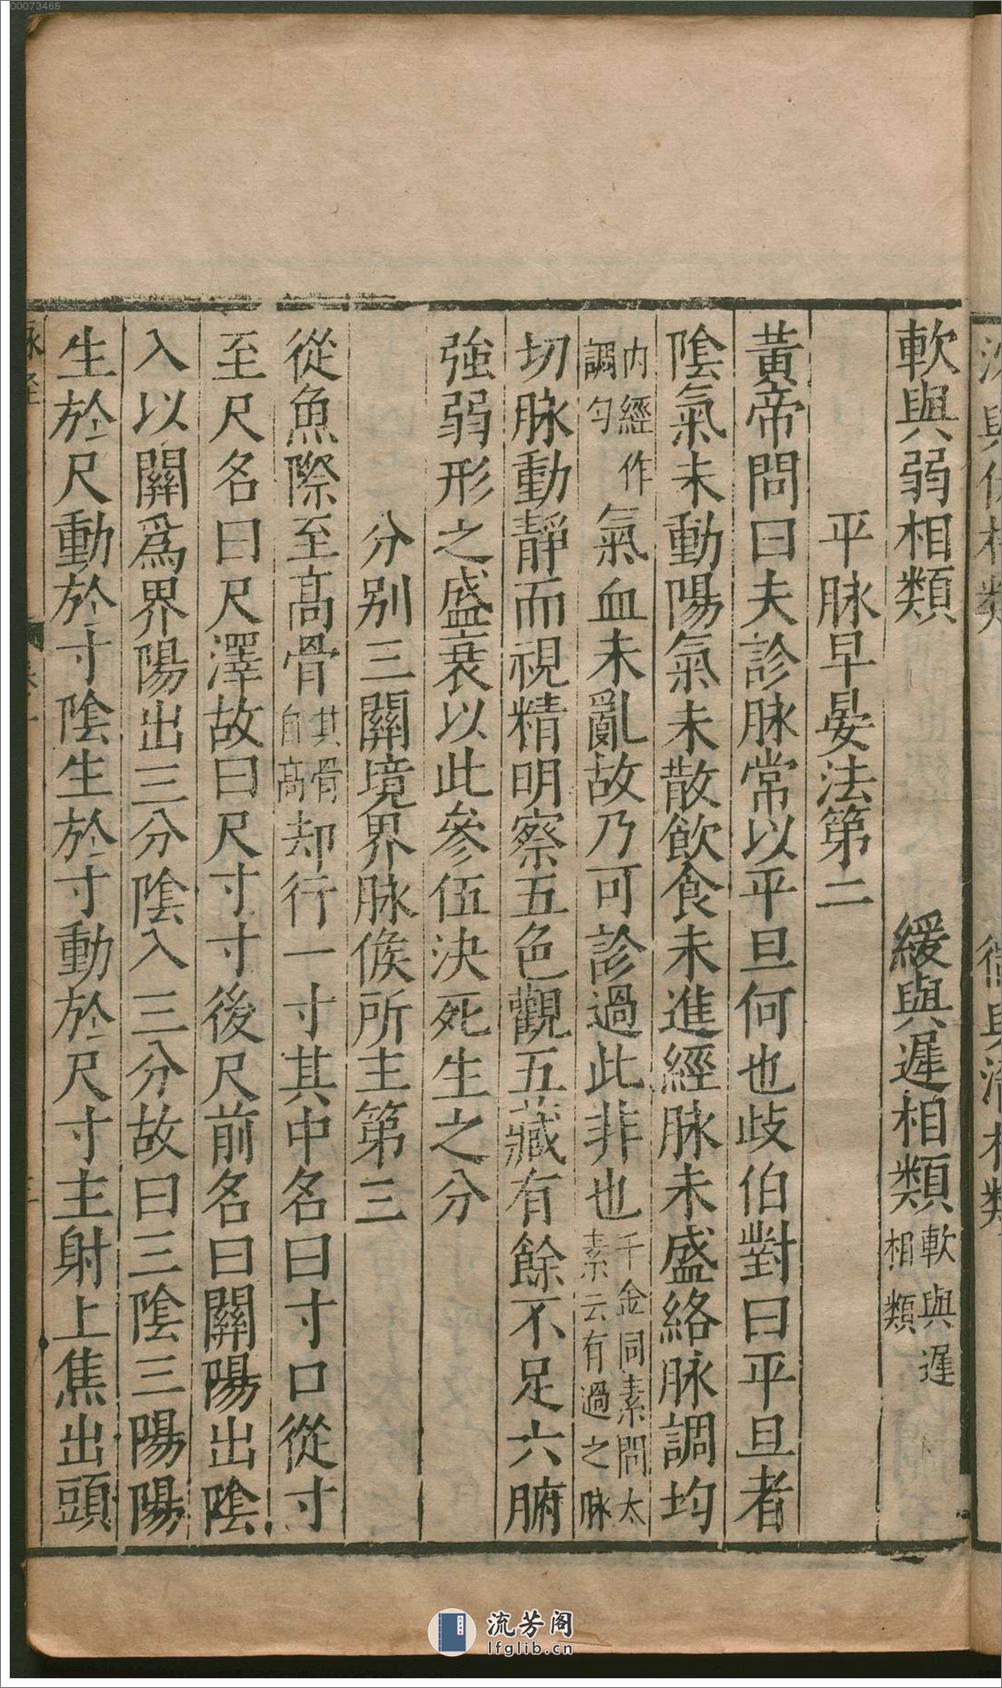 00073465
軟與弱相類　緩與遲相類軟與遲相類
平脉早晏法第二
黃帝問曰夫診脉常以平旦何也歧伯對曰平旦者
陰氣未動陽氣未散飲食未進經脉未盛絡脉調均
內經作調勻氣血未亂故乃可診過此非也千金同素問太素云有過之脉
切脉動靜而視精明察五色觀五藏有餘不足六腑
強弱形之盛衰以此參伍決死生之分
分別三關境界脉候所主第三
從魚際至高骨其骨自高却行一寸其中名曰寸口從寸
至尺名曰尺澤故曰尺寸寸後尺前名曰關陽出陰
入以關爲界陽出三分陰入三分故曰三陰三陽陽
生於尺動於寸陰生於寸動於尺寸主射上焦出頭
流芳阁
lfglib.cn